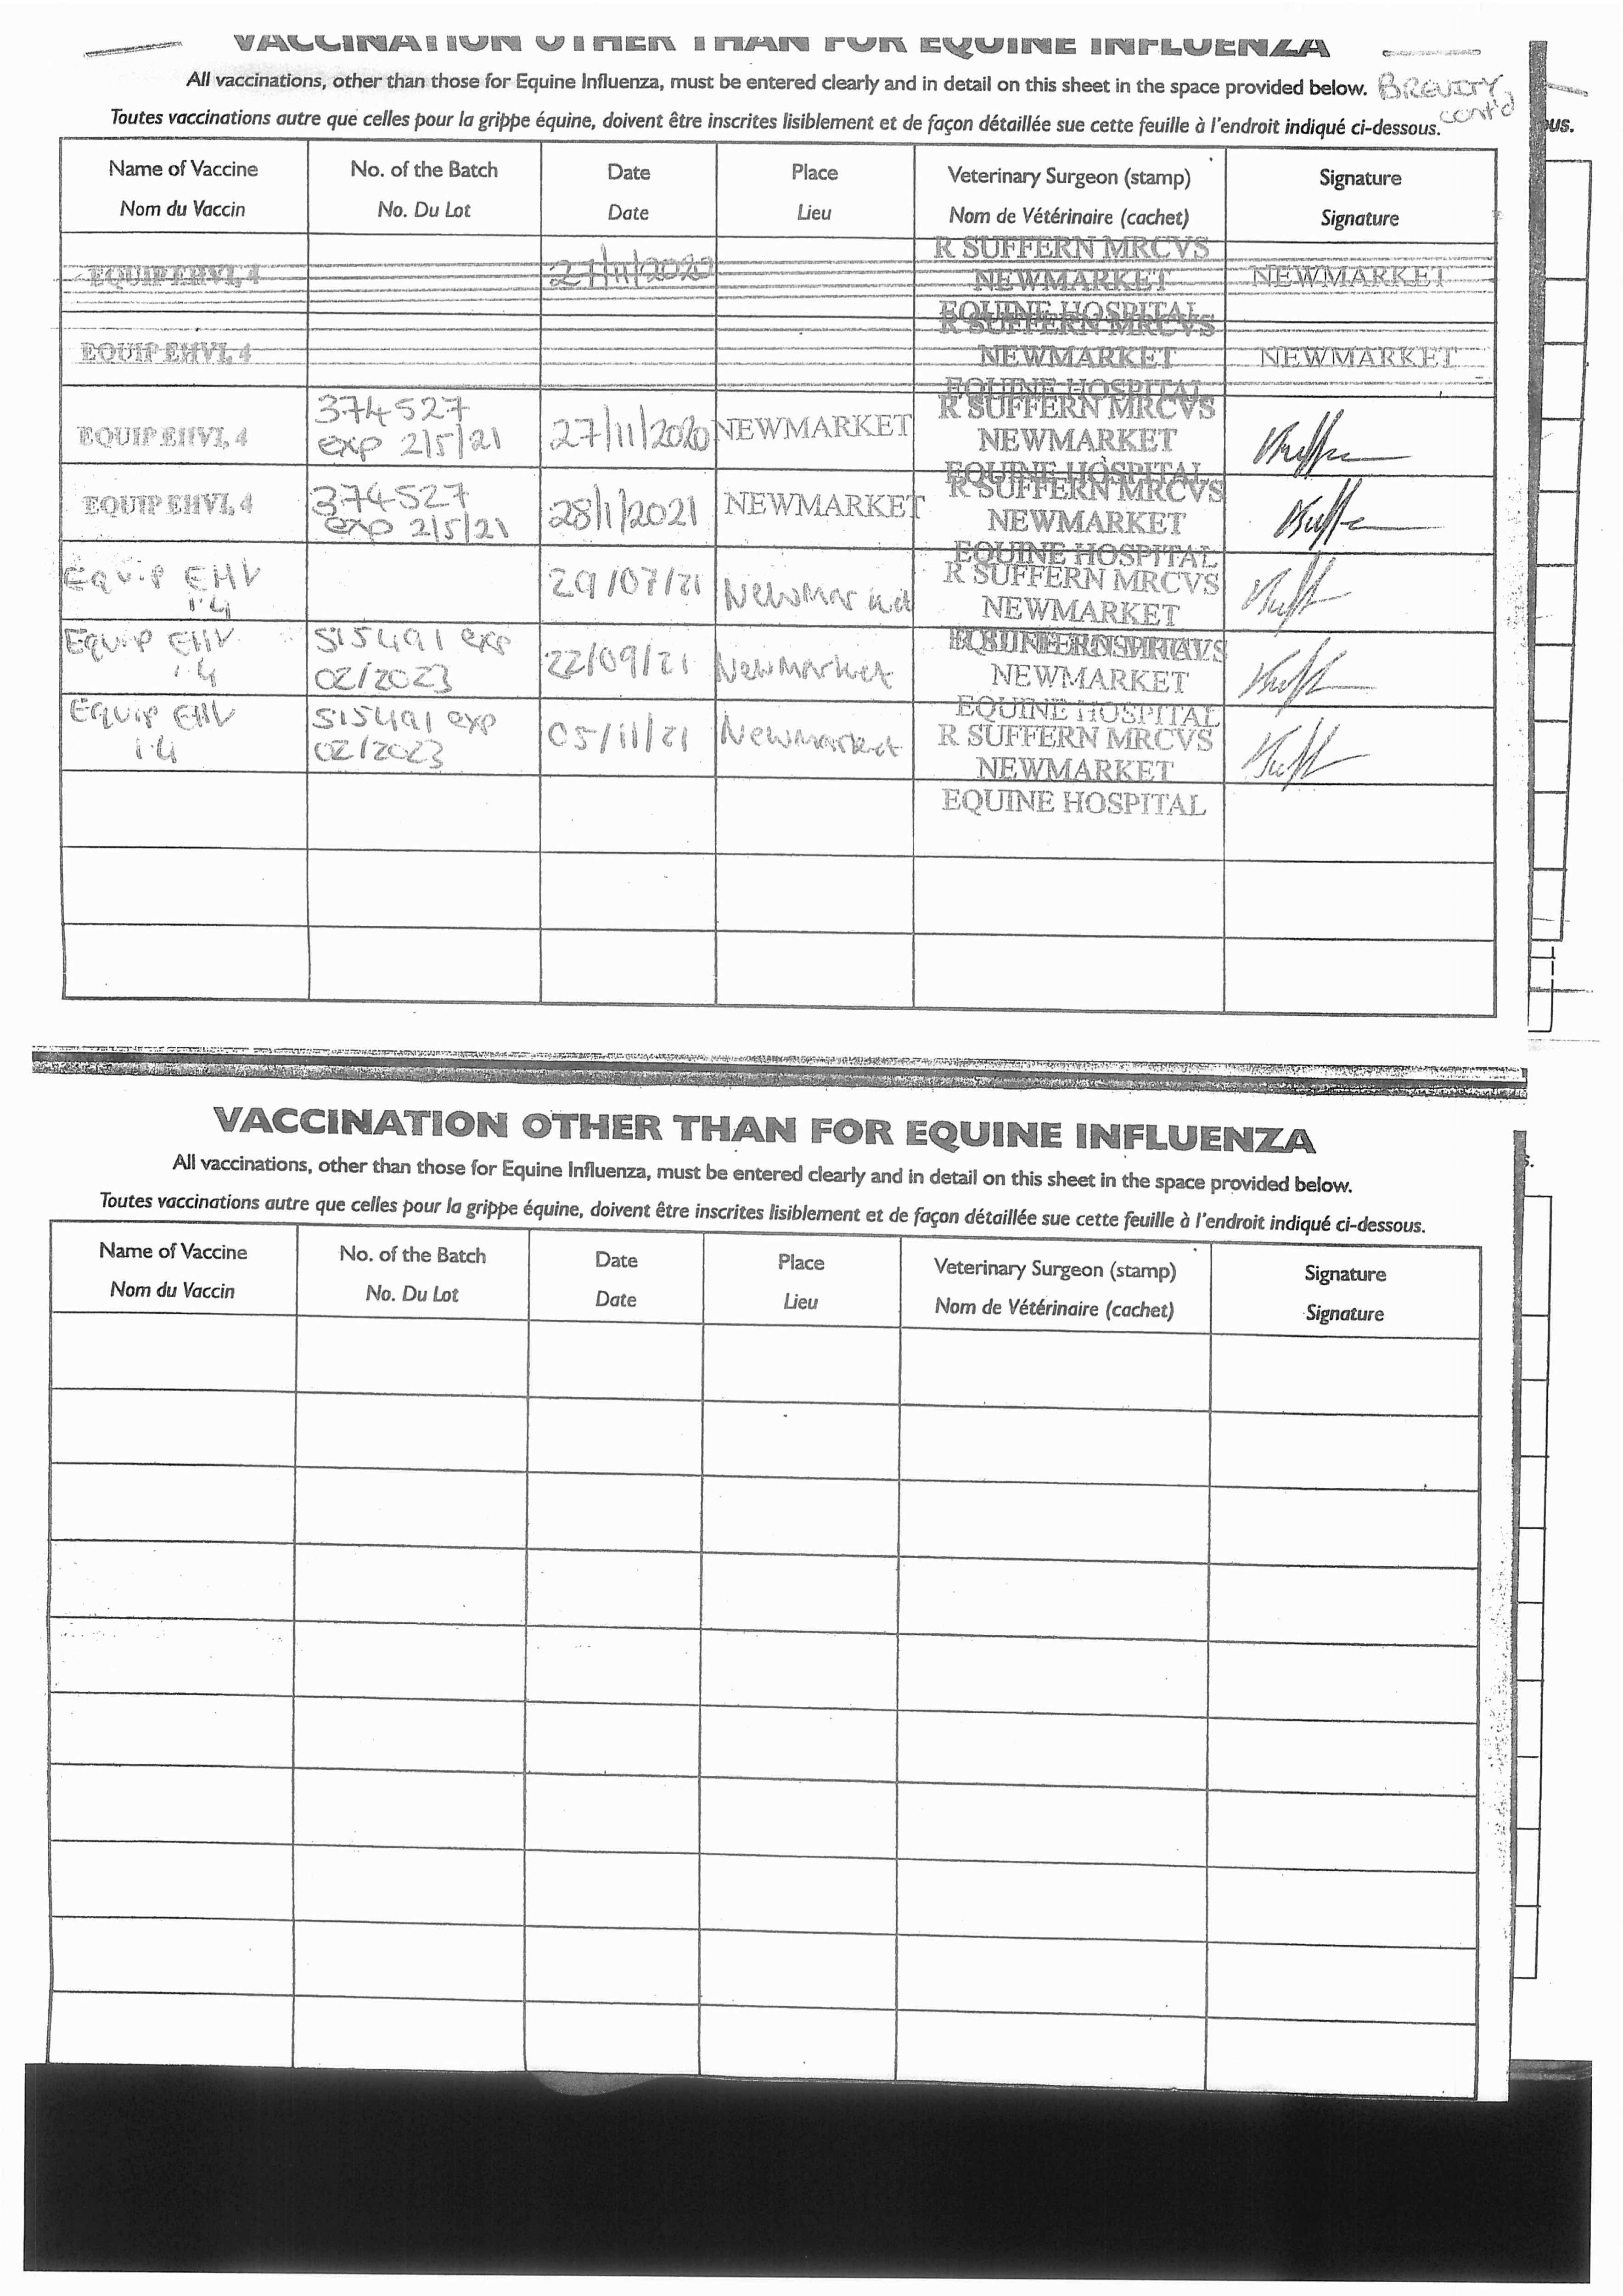 VACCINATION OTHER THAN FOR EQUINE INFLUENZA
All vaccinations, other than those for Equine Influenza, must be entered clearly and in detail on this sheet in the space provided below. BREVITY,
Toutes vaccinations autre que celles pour la grippe équine, doivent être inscrites lisiblement et de façon détaillée sue cette feuille à l'endroit indiqué ci-dessous. cont'd
ous.
Name of Vaccine No. of the Batch Date Place Veterinary Surgeon (stamp) Signature
Nom du Vaccin No. Du Lot Date Lieu Nom de Vétérinaire (cachet) Signature
R SUFFERN MRCVS
EQUIP EHV1,4 27/11/2020 NEWMARKET NEWMARKET
EQUINE HOSPITAL
R SUFFERN MRCVS
EQUIP EHV1,4 NEWMARKET NEWMARKET
EQUINE HOSPITAL
374527 R SUFFERN MRCVS
EQUIP EHV1,4 exp 2/5/21 27/11/2020 NEWMARKET NEWMARKET
EQUINE HOSPITAL
374527 R SUFFERN MRCVS
EQUIP EHV1,4 exp 2/5/21 28/1/2021 NEWMARKET NEWMARKET
EQUINE HOSPITAL
Equip EHV 29/07/21 Newmarket R SUFFERN MRCVS
1.4 NEWMARKET
Equip EHV 515491 exp 22/09/21 Newmarket
1.4 02/2023 NEWMARKET
EQUINE HOSPITAL
Equip EHV 515491 exp 05/11/21 Newmarket R SUFFERN MRCVS
1.4 02/2023 NEWMARKET
EQUINE HOSPITAL
VACCINATION OTHER THAN FOR EQUINE INFLUENZA
All vaccinations, other than those for Equine Influenza, must be entered clearly and in detail on this sheet in the space provided below.
s.
Toutes vaccinations autre que celles pour la grippe équine, doivent être inscrites lisiblement et de façon détaillée sue cette feuille à l'endroit indiqué ci-dessous.
Name of Vaccine No. of the Batch Date Place Veterinary Surgeon (stamp) Signature
Nom du Vaccin No. Du Lot Date Lieu Nom de Vétérinaire (cachet) Signature